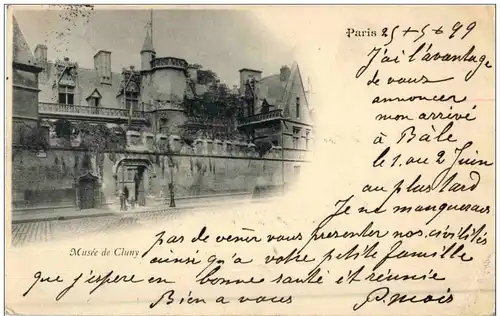 Paris 25 + 5 + 99
J'ai l'avantage
de vous
annoncer
mon arrivé
à Bâle
le 1. ou 2 Juin
au plus tard
Je ne manquerais
pas de venir vous presenter nos civilités
ainsi qu'a votre petite famille
que j'espere en bonne santé et réunie
Bien a vous
Musée de Cluny